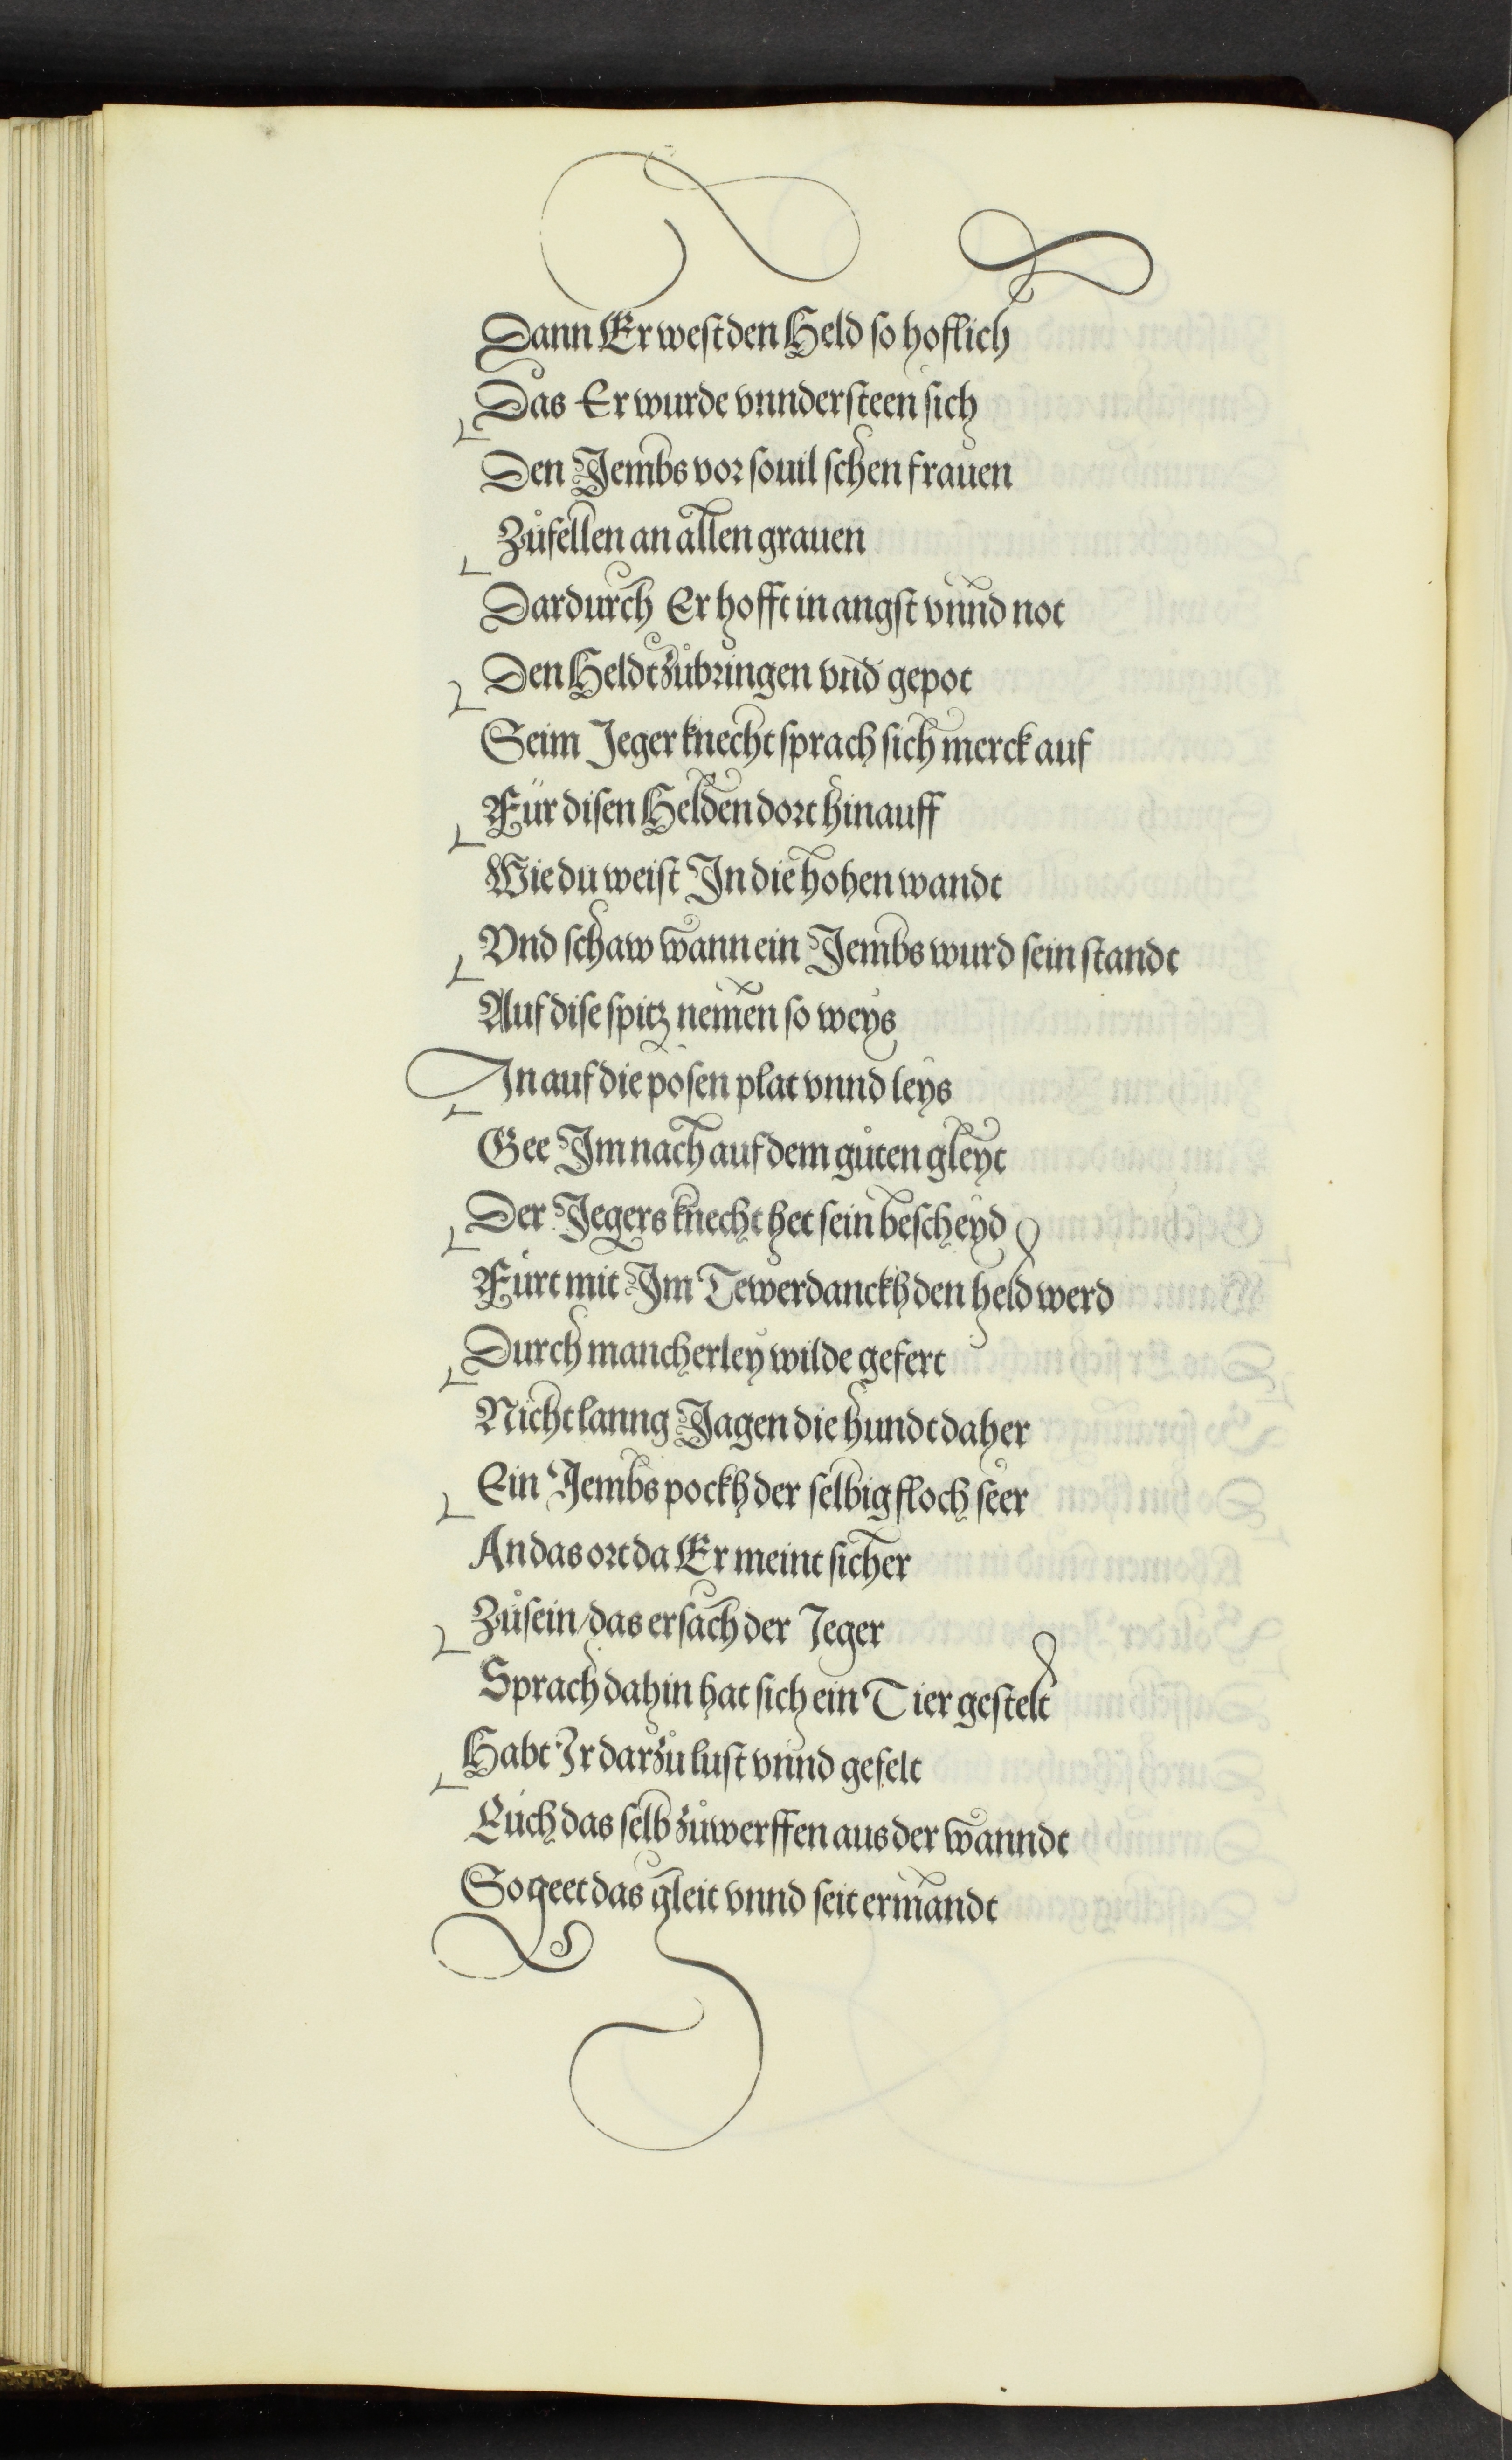 Dann Er west den Held so hoflich
Das Er wurde vnndersteen sich
Den Jembs vor souil schen frauen
Zůfellen an allen grauen
Dardurch Er hofft in angst vnnd not
Den Heldt zůbringen vnd gepot
Seim Jeger knecht sprach sich merck auf
Für disen Helden dort hinauff
Wie du weist In die hohen wandt
Vnd schaw wann ein Jembs wurd sein standt
Auf dise spitz nemen so weys
In auf die posen plat vnnd leys
Gee Im nach auf dem gůten gleyt
Der Jegers knecht het sein bescheyd
Fürt mit Im Tewerdanckh den held werd
Durch mancherley wilde gefert
Nicht lanng Jagen die hundt daher
Ein Jembs pockh der selbig floch seer
An das ort da Er meint sicher
Zůsein/das ersach der Jeger
Sprach dahin hat sich ein Tier gestelt
Habt Ir darzů lust vnnd gefelt
Eüch das selb zůwerffen aus der wanndt
So geet das gleit vnnd seit ermandt